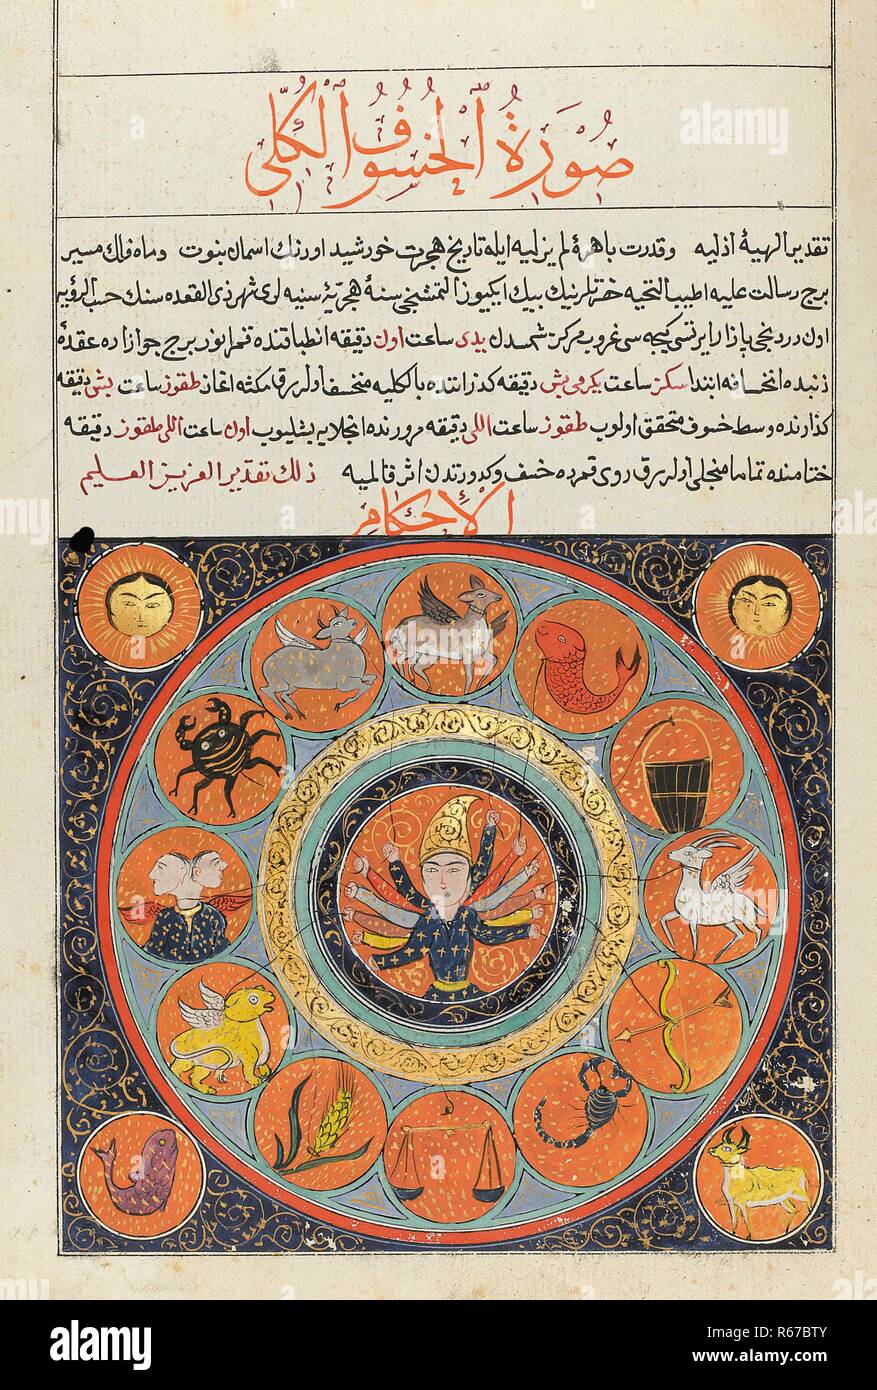 صُورَةُ الخُسُوف الكُلّى
تقدير الهيهٔ ازليه وقدرت باهرهٔ لم يزليه ايله تاريخ هجرت خورشيد اورنك اسمان نبوت وماه فلك مسير
برج رسالت عليه اطيب التحيه حضرتلرينك بيك ايكيوز التمشنجى سنهٔ هجريهٔ سنيه لرى شهر ذى القعده سنك حسب الرؤيه
اون دردنجى پازار ايرتسى كيجه سى غروب مركز شمسدن يدى ساعت اون دقيقه انطباقنده قمر انور برج جوزاده عقدهٔ
ذنبده انخسافه ابتدا سكز ساعت يكرمى بش دقيقه كذراننده بالكليه منخسف اوله رق مكثه اغاز طقوز ساعت بش دقيقه
كذارنده وسط خسوف متحقق اولوب طقوز ساعت اللى دقيقه مرورنده انجلايه بشليوب اون ساعت اللى طقوز دقيقه
ختامنده تماما منجلى اوله رق روى قمرده خسف وكدورتدن اثر قالميه ذلك تقدير العزيز العليم
الأحكام
alamy
alamy
Image ID: R67BTY
www.alamy.com